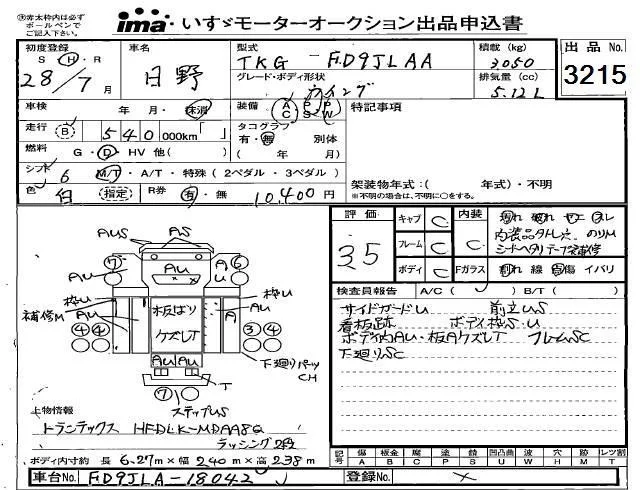 ※赤太枠内は必ず
ボールペンで
ご記入下さい。
ima いすゞモーターオークション出品申込書
初度登録
S・H・R
28/7月
車名
日野
型式
TKG-FD9JLAA
グレード・ボディ形状
ウイング
積載 (kg)
3050
排気量 (cc)
5.12L
出品No.
3215
車検
年 月・抹消
装備
A P P
C S W
特記事項
走行 B 540 000km「 」
タコグラフ
有・無 別体
( 年 月)
燃料 G・D・HV 他( )
シフト 6 M/T・A/T・特殊(2ペダル・3ペダル)
色 白 (指定) R券 有・無 10,400円
架装物年式:( 年式)・不明
※不明の場合は、不明に○をする。
評価
3.5
キャブ C
フレーム C
ボディ C
内装 C
Fガラス
汚れ 破れ コゲ スレ
内装品タトレ穴 のりM
シートヘタリテープ補修
割れ 線 点傷 イバリ
検査員報告 A/C( ) B/T( )
サイドガードU 前立US
看板跡 ボディ枠S・U
ボディ内AU・板AケズレT フレームSC
下廻りSC
AUS AS
⑦ AU AU A U ⑥
枠U 枠U
補修M AU
板ばり
ケズレT
A
④④ ③④
AU AU
下廻りパーツ
CH
T
⑦
ステップUS
上物情報
トランテックス HFDLK-MDAA8Q
ラッシング2段
ボディ内寸約 長 6.27m×幅 2.40m×高 2.38m
記号
傷 板金 腐 塗 錆 凹凸曲 凹 穴 跡 レツ割
A B C P S U W H M T
車台No. FD9JLA-18042
登録No.